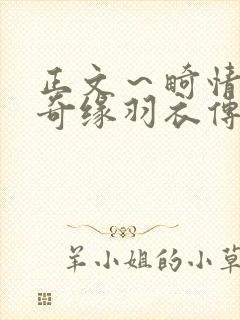 正文～畸情
奇缘羽衣传
羊小姐的小草